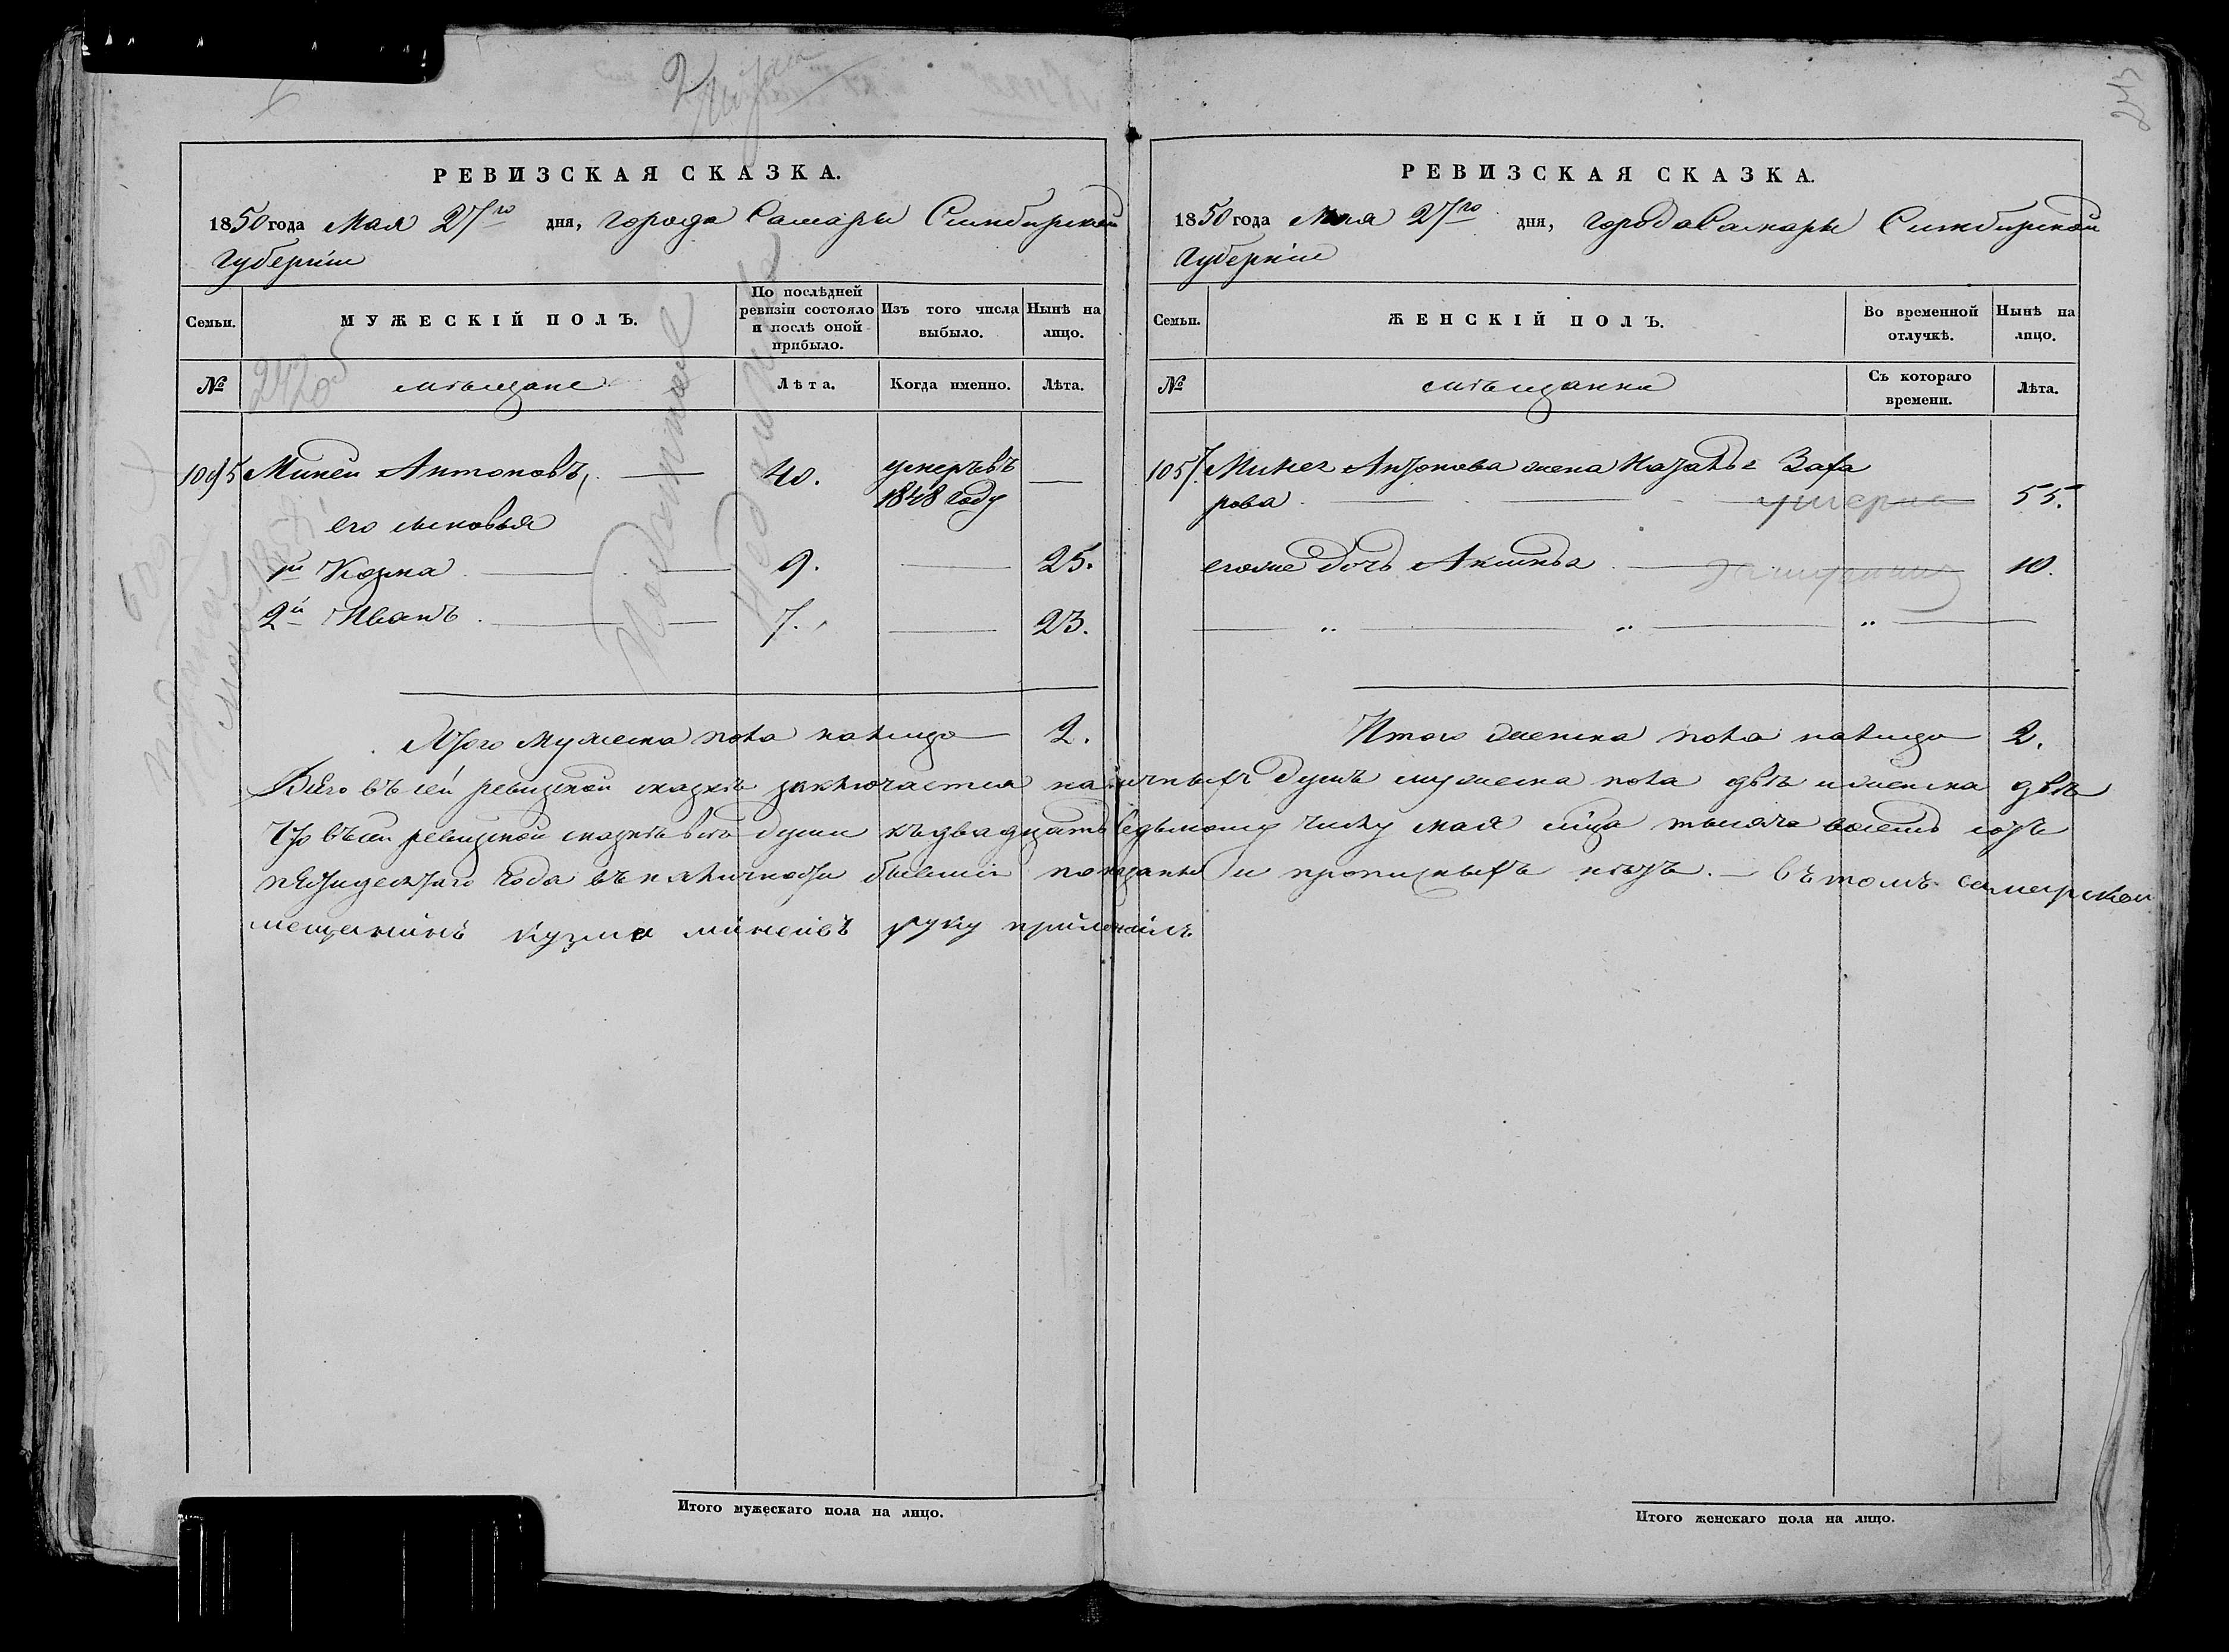 РЕВИЗСКАЯ СКАЗКА.
1850 года Мая 27го дня, города Самары Симбирской
Губернiи
Семьи.
МУЖЕСКIЙ ПОЛЪ.
По послѣдней ревизiи состояло и послѣ оной прибыло.
Изъ того числа выбыло.
Нынѣ на лицо.
№
мѣщане
Лѣта.
Когда именно.
Лѣта.
Миней Антоновъ, 40. умеръ въ 1848 году
его сыновья
1й Козма 9. 25.
2й Иванъ 7. 23.
Итого мужеска пола налицо 2.
Итого мужескаго пола на лицо.
РЕВИЗСКАЯ СКАЗКА.
1850 года Мая 27го дня, города Самары Симбирской
Губернiи
Семьи.
ЖЕНСКIЙ ПОЛЪ.
Во временной отлучкѣ.
Нынѣ на лицо.
№
мѣщанки
Съ котораго времени.
Лѣта.
1057. Минея Антонова жена Наталья Заха
рова умерла 55.
егоже дочь Акулина 10.
Итого женска пола налицо 2.
Всего въ сей ревизской сказкѣ заключается наличныхъ душъ мужеска пола двѣ и женска двѣ
Что въ сей ревизской сказкѣ всѣ души къ двадцать седьмому числу мая мѣца тысяча восемь сотъ
пятидесятаго года въ наличности бывшiя показаны и прописныхъ нѣтъ. — въ томъ самарской
мещанинъ кузма минеiвъ руку приложилъ
Итого женскаго пола на лицо.